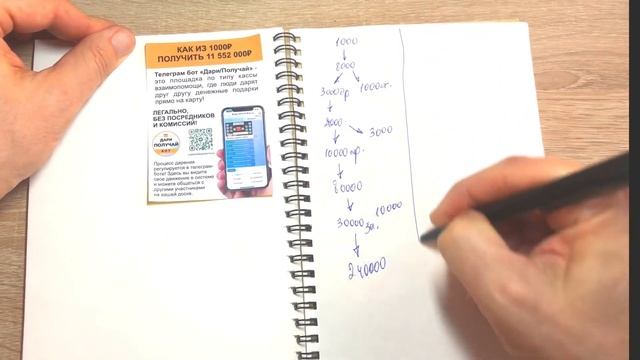 КАК ИЗ 1000₽
ПОЛУЧИТЬ 11 552 000₽
Телеграм бот «Дари/Получай» -
это площадка по типу кассы
взаимопомощи, где люди дарят
друг другу денежные подарки
прямо на карту!
ЛЕГАЛЬНО,
БЕЗ ПОСРЕДНИКОВ
И КОМИССИЙ!
ДАРИ
ПОЛУЧАЙ
БОТ
Процесс дарения
регулируется в телеграм-
боте! Здесь вы видите
свое движение в системе
и можете общаться с
другими участниками
на вашей доске.
1000
8000
3000 пр. 1000
3000
10000 пр.
80000
30000 за. 10000
240000